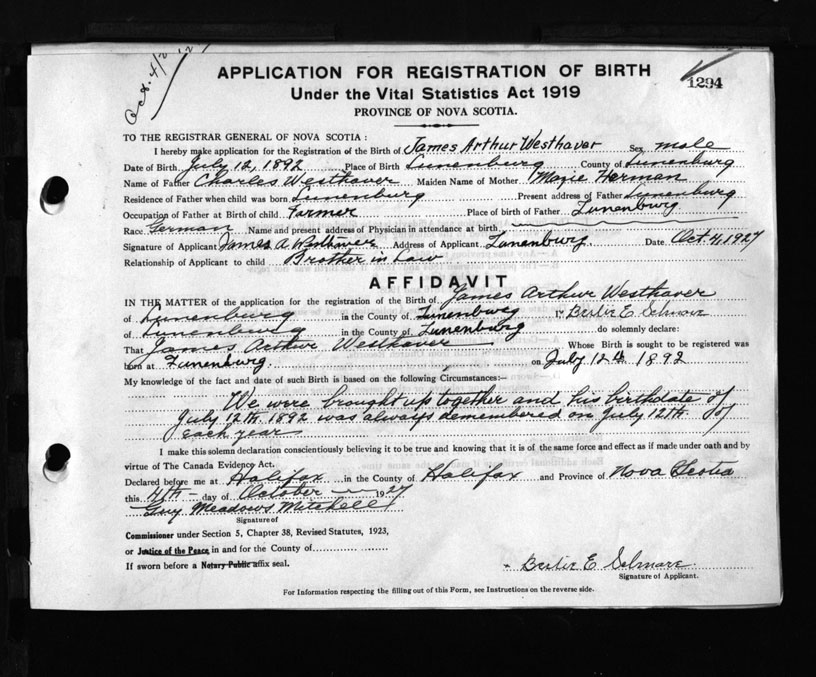 Oct. 4/27
1294
APPLICATION FOR REGISTRATION OF BIRTH
Under the Vital Statistics Act 1919
PROVINCE OF NOVA SCOTIA.
TO THE REGISTRAR GENERAL OF NOVA SCOTIA :
I hereby make application for the Registration of the Birth of James Arthur Westhaver Sex male
Date of Birth July 12, 1892 Place of Birth Lunenburg County of Lunenburg
Name of Father Charles Westhaver Maiden Name of Mother Mazie Herman
Residence of Father when child was born Lunenburg Present address of Father Lunenburg
Occupation of Father at Birth of child Farmer Place of birth of Father Lunenburg
Race German Name and present address of Physician in attendance at birth
Signature of Applicant James A Westhaver Address of Applicant Lunenburg Date Oct. 4, 1927
Relationship of Applicant to child Brother in Law
AFFIDAVIT
IN THE MATTER of the application for the registration of the Birth of James Arthur Westhaver
of Lunenburg in the County of Lunenburg I E
of Lunenburg in the County of Lunenburg do solemnly declare:
That James Arthur Westhaver Whose Birth is sought to be registered was
born at Lunenburg. on July 12th 1892
My knowledge of the fact and date of such Birth is based on the following Circumstances:—
We were brought up together and his birthdate of
July 12th 1892 was always demembered on July 12th of
each year
I make this solemn declaration conscientiously believing it to be true and knowing that it is of the same force and effect as if made under oath and by
virtue of The Canada Evidence Act.
Declared before me at Halifax in the County of Halifax and Province of Nova Scotia
this 4th day of October 1927
Guy Meadows Mitchell
Signature of
Commissioner under Section 5, Chapter 38, Revised Statutes, 1923,
or Justice of the Peace in and for the County of
If sworn before a Notary Public affix seal.
E
Signature of Applicant.
For Information respecting the filling out of this Form, see Instructions on the reverse side.